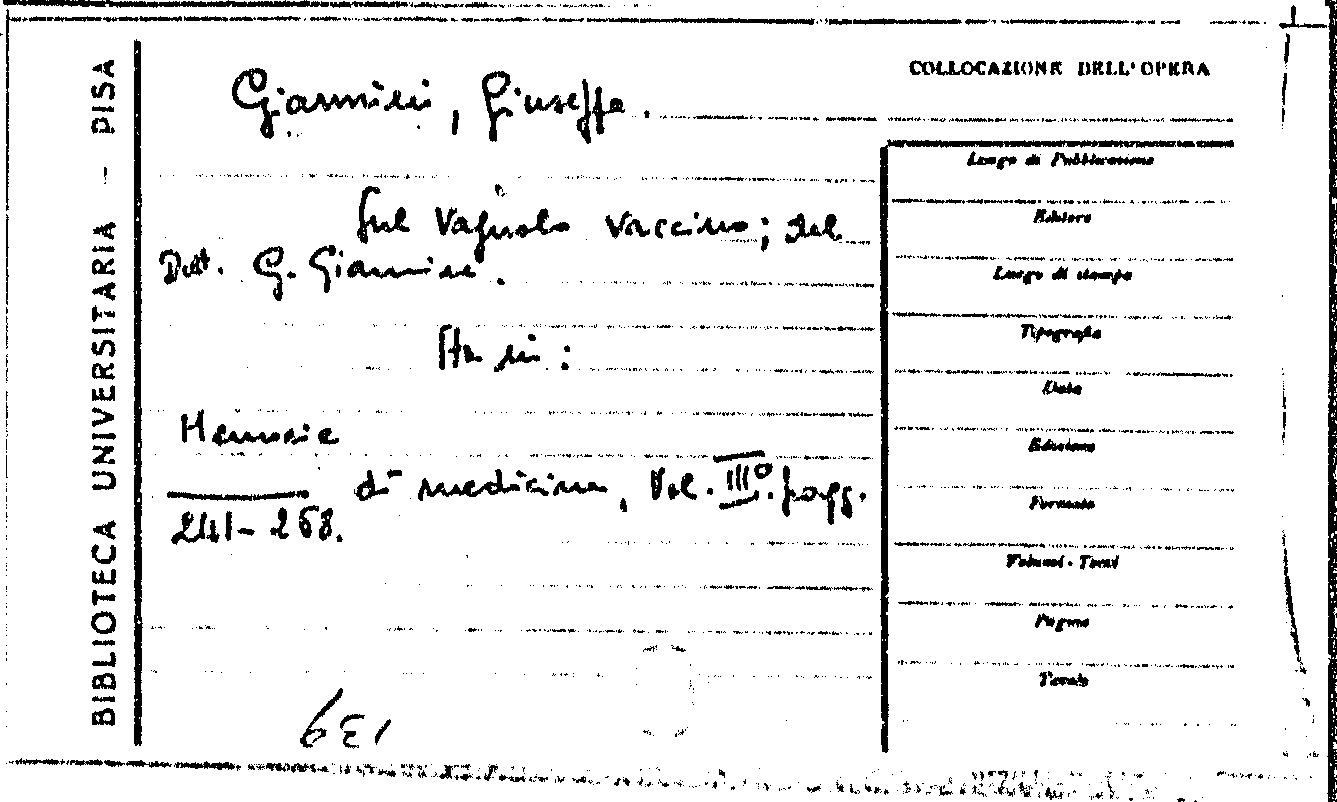 BIBLIOTECA UNIVERSITARIA - PISA
Giannini, Giuseppe.
Sul Vajuolo vaccino; del
Dott. G. Giannini.
Sta in:
Memorie
di medicina, Vol. III°. pagg.
241-268.
139
COLLOCAZIONE DELL'OPERA
Luogo di Pubblicazione
Editore
Luogo di stampa
Tipografia
Data
Edizione
Formato
Volumi - Tomi
Pagine
Tavole